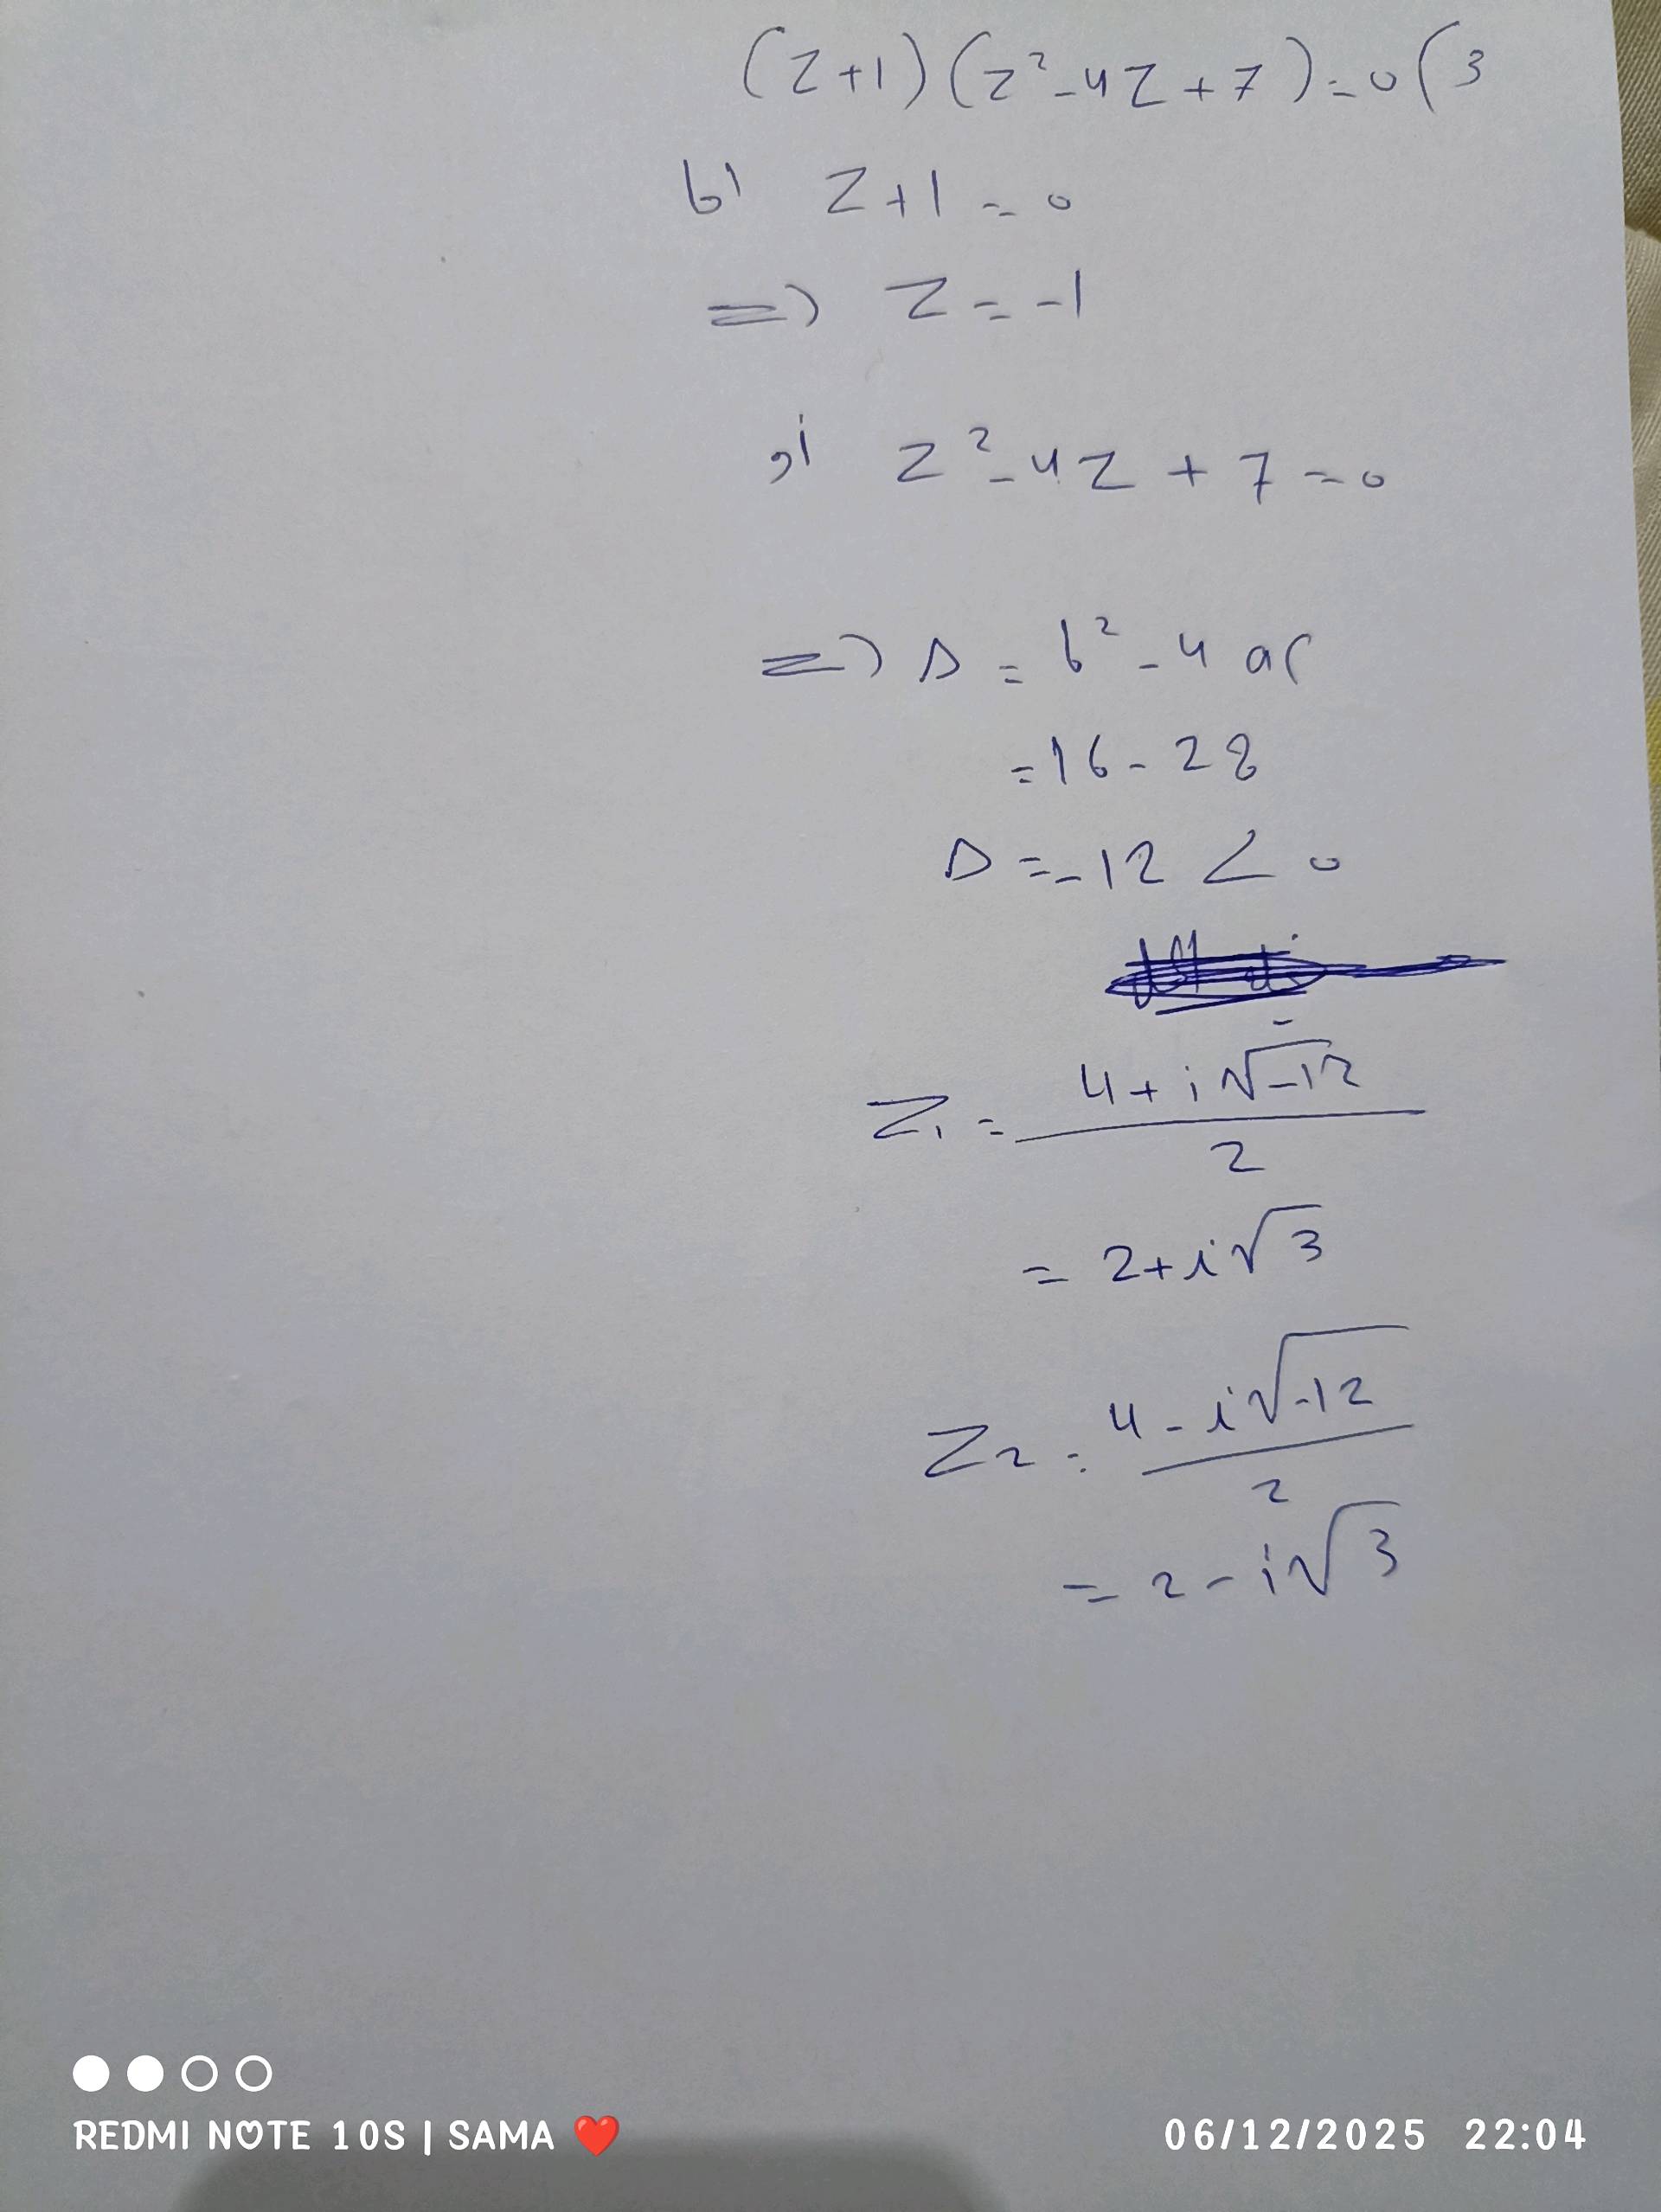 (z+1)(z²-4z+7)=0 (3
إما z+1=0
=> z=-1
أو z²-4z+7=0
=> Δ=b²-4ac
=16-28
Δ=-12<0
z₁=(4+i√-12)/2
=2+i√3
z₂=(4-i√-12)/2
=2-i√3
REDMI NOTE 10S | SAMA ❤️
06/12/2025 22:04